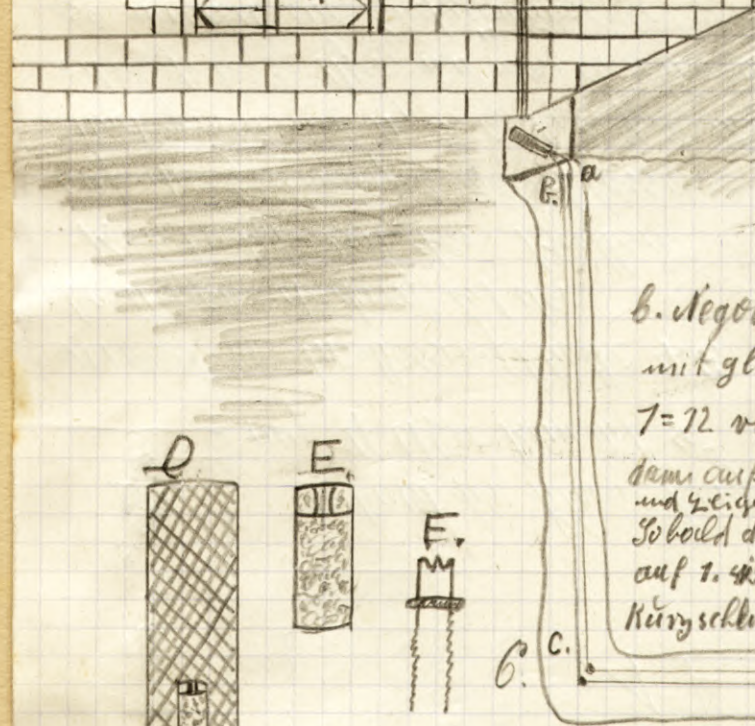 a
b.
b. Nego
mit gl
1=12 v
dann auf
und zeig
Sobald d
auf 1.
Kurzschlu
D
E.
E.
C.
6.